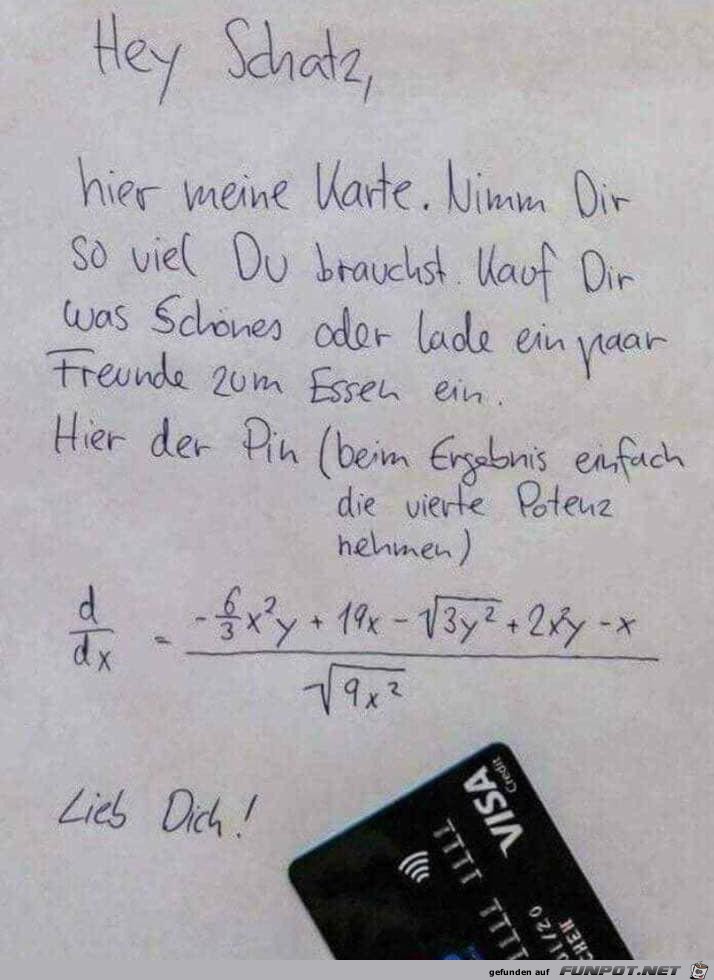 Hey Schatz,
hier meine Karte. Nimm Dir
so viel Du brauchst. Kauf Dir
was Schönes oder lade ein paar
Freunde zum Essen ein.
Hier der Pin (beim Ergebnis einfach
die vierte Potenz
nehmen)
d/dx = (-6/3x²y + 19x - √(3y²) + 2x²y - x) / √(9x²)
Lieb Dich!
VISA
Credit
01/20
gefunden auf FUNPOT.NET